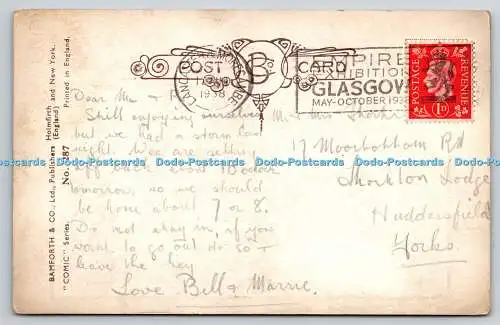 POST CARD
B
1938
EMPIRE
EXHIBITION
GLASGOW
MAY-OCTOBER 1938
POSTAGE
REVENUE
1D
BAMFORTH & CO., Ltd., Publishers Holmfirth and New York.
(England)
"COMIC" Series. No. 287 Printed in England.
Dear Mr &
Still enjoying ourselves
but we had a storm last
night. We are setting
off back about
tomorrow, so we should
be home about 7 or 8.
Do not stay in, if you
want to go out do so &
leave the key
Love Bill & Marrie.
Mr & Mrs
17 Moorbottom Rd
Thornton Lodge
Huddersfield
Yorks.
Dodo-Postcards Dodo-Postcards Dodo-Postcards Dodo-Postcards Dodo-Postcards